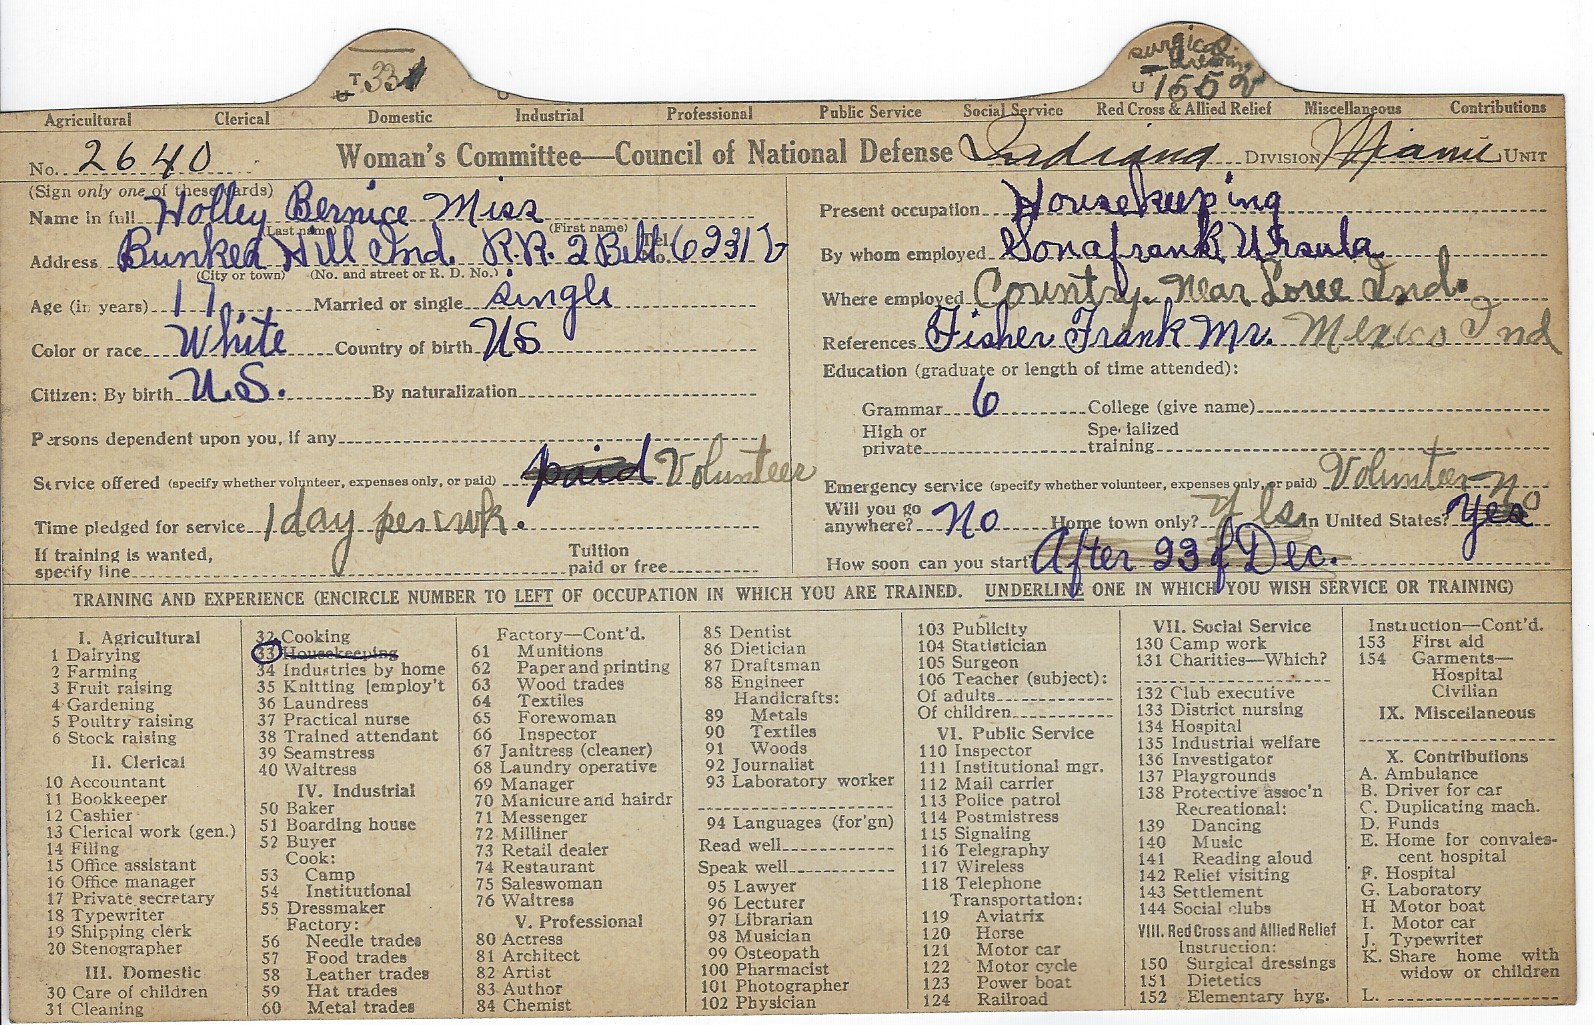 surgical
dressing
T 33
U 155
Agricultural Clerical Domestic Industrial Professional Public Service Social Service Red Cross & Allied Relief Miscellaneous Contributions
No. 2640 Woman's Committee—Council of National Defense Indiana DIVISION Miami UNIT
(Sign only one of these cards)
Name in full Holley Bernice Miss
(Last name) (First name)
Address Bunker Hill Ind. R.R. 2 Bell Tel. No. 6231
(City or town) (No. and street or R. D. No.)
Age (in years) 17 Married or single single
Color or race White Country of birth US
Citizen: By birth U.S. By naturalization
Persons dependent upon you, if any
Service offered (specify whether volunteer, expenses only, or paid) paid Volunteer
Time pledged for service 1 day per wk.
If training is wanted,
specify line Tuition
paid or free
Present occupation Housekeeping
By whom employed Sonafrank Ursula
Where employed Country. Near Loree Ind.
References Fisher Frank Mr. Mexico Ind
Education (graduate or length of time attended):
Grammar 6 College (give name)
High or
private Specialized
training
Emergency service (specify whether volunteer, expenses only, or paid) Volunteer
Will you go
anywhere? No Home town only? Yes In United States? Yes No
How soon can you start After 23 of Dec.
TRAINING AND EXPERIENCE (ENCIRCLE NUMBER TO LEFT OF OCCUPATION IN WHICH YOU ARE TRAINED. UNDERLINE ONE IN WHICH YOU WISH SERVICE OR TRAINING)
I. Agricultural
1 Dairying
2 Farming
3 Fruit raising
4 Gardening
5 Poultry raising
6 Stock raising
II. Clerical
10 Accountant
11 Bookkeeper
12 Cashier
13 Clerical work (gen.)
14 Filing
15 Office assistant
16 Office manager
17 Private secretary
18 Typewriter
19 Shipping clerk
20 Stenographer
III. Domestic
30 Care of children
31 Cleaning
32 Cooking
33 Housekeeping
34 Industries by home
35 Knitting [employ't
36 Laundress
37 Practical nurse
38 Trained attendant
39 Seamstress
40 Waitress
IV. Industrial
50 Baker
51 Boarding house
52 Buyer
Cook:
53 Camp
54 Institutional
55 Dressmaker
Factory:
56 Needle trades
57 Food trades
58 Leather trades
59 Hat trades
60 Metal trades
Factory—Cont'd.
61 Munitions
62 Paper and printing
63 Wood trades
64 Textiles
65 Forewoman
66 Inspector
67 Janitress (cleaner)
68 Laundry operative
69 Manager
70 Manicure and hairdr
71 Messenger
72 Milliner
73 Retail dealer
74 Restaurant
75 Saleswoman
76 Waitress
V. Professional
80 Actress
81 Architect
82 Artist
83 Author
84 Chemist
85 Dentist
86 Dietician
87 Draftsman
88 Engineer
Handicrafts:
89 Metals
90 Textiles
91 Woods
92 Journalist
93 Laboratory worker
94 Languages (for'gn)
Read well
Speak well
95 Lawyer
96 Lecturer
97 Librarian
98 Musician
99 Osteopath
100 Pharmacist
101 Photographer
102 Physician
103 Publicity
104 Statistician
105 Surgeon
106 Teacher (subject):
Of adults
Of children
VI. Public Service
110 Inspector
111 Institutional mgr.
112 Mail carrier
113 Police patrol
114 Postmistress
115 Signaling
116 Telegraphy
117 Wireless
118 Telephone
Transportation:
119 Aviatrix
120 Horse
121 Motor car
122 Motor cycle
123 Power boat
124 Railroad
VII. Social Service
130 Camp work
131 Charities—Which?
132 Club executive
133 District nursing
134 Hospital
135 Industrial welfare
136 Investigator
137 Playgrounds
138 Protective assoc'n
Recreational:
139 Dancing
140 Music
141 Reading aloud
142 Relief visiting
143 Settlement
144 Social clubs
VIII. Red Cross and Allied Relief
Instruction:
150 Surgical dressings
151 Dietetics
152 Elementary hyg.
Instruction—Cont'd.
153 First aid
154 Garments—
Hospital
Civilian
IX. Miscellaneous
X. Contributions
A. Ambulance
B. Driver for car
C. Duplicating mach.
D. Funds
E. Home for convales-
cent hospital
F. Hospital
G. Laboratory
H Motor boat
I. Motor car
J. Typewriter
K. Share home with
widow or children
L.